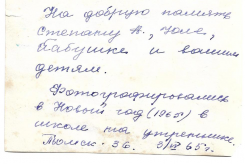 На добрую память
Степану А., Юле,
бабушке и вашим
детям.
Фотографировались
в Новый год (1965г)
в школе на утреннике.
Томск-36. 65г.